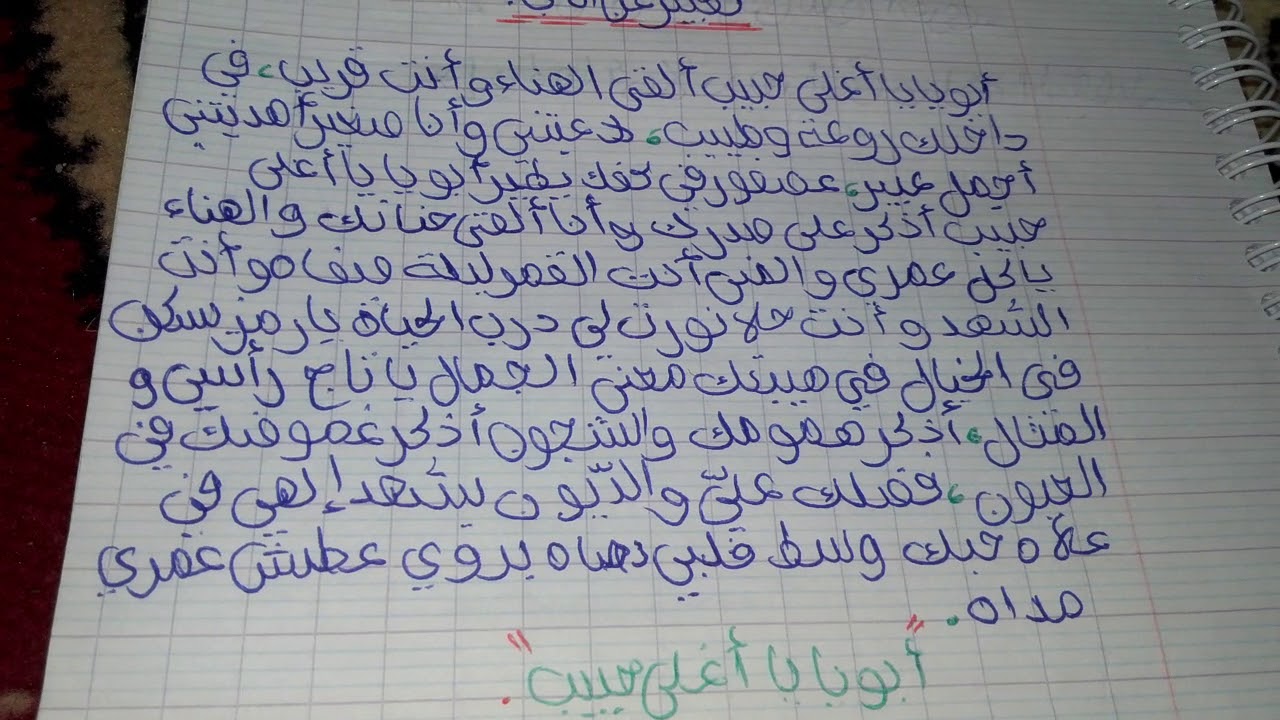 تعبير عن الأب.
أبويا يا أغلى حبيب ألقى الهناء وأنت قريب، في
داخلك روعة وطيب، دلعتني وأنا صغير أهديتني
أجمل عبير، عصفور في كفك يطير أبويا يا أغلى
حبيب أذكر على صدرك وأنا ألقى حنانك والهناء
يا كل عمري والمنى أنت القمر ليلة صفاه وأنت
الشهد وأنت حلاه نورت لي درب الحياة يا رمز سكن
في الخيال في هيبتك معنى الجمال يا تاج رأسي و
المثال، أذكر همومك والشجون أذكر غموضك في
العيون، فضلك عليّ والدّيون يشهد إلهي في
علاه حبك وسط قلبي دماه يروي عطش عمري
مداه.
"أبويا يا أغلى حبيب".